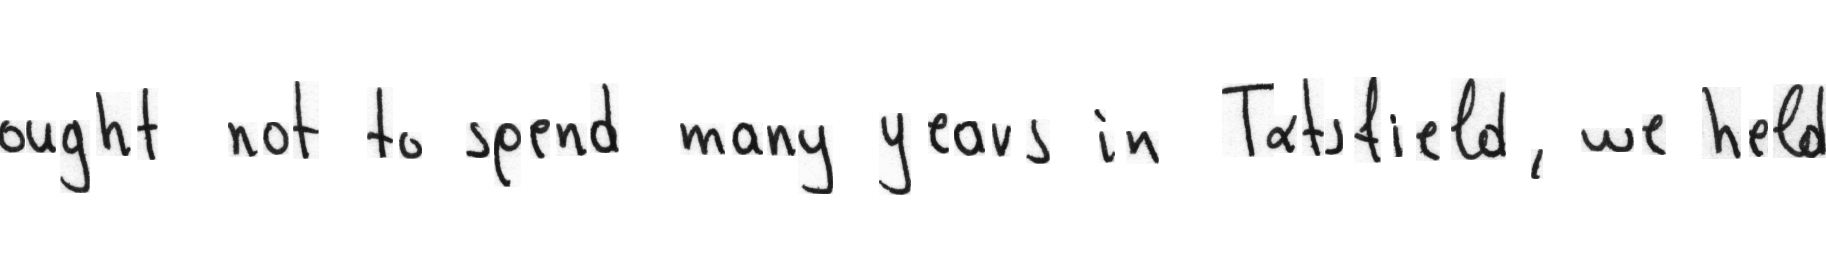 ought not to spend many years in Tatsfield, we held